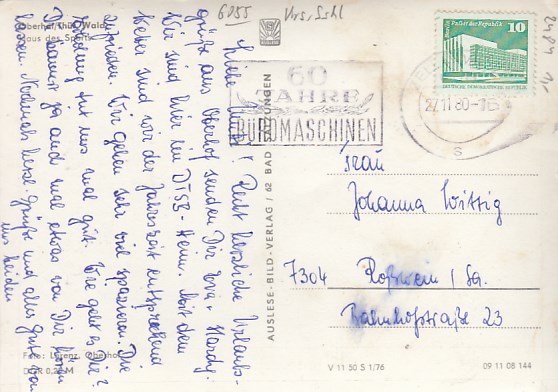 6255
Vrs. Suhl
Oberhof/Thür. Wald
Haus des Sports
Liebe Mutti! Recht herzliche Urlaubs-
grüße aus Oberhof senden Dir Eva + Hardy.
Wir sind hier im DTSB-Heim. Mit dem
Wetter sind wir der Jahreszeit entsprechend
zufrieden. Wir gehen sehr viel spazieren. Die
Erholung tut uns mal gut. Wie geht es Dir?
Du kannst ja auch mal etwas von Dir hören
lassen. Nochmals liebe Grüße und alles Gute von
uns beiden
Foto: Lorenz, Oberhof
DDR 0,20 M
AUSLESE-BILD-VERLAG / 62 BAD SALZUNGEN
60
JAHRE
BÜROMASCHINEN
27.11.80-16
s
Palast der Republik
10
DEUTSCHE DEMOKRATISCHE REPUBLIK
Frau
Johanna Wittig
7304 Roßwein / Sa.
Bahnhofstraße 23
V 11 50 S 1/76
09 11 08 144